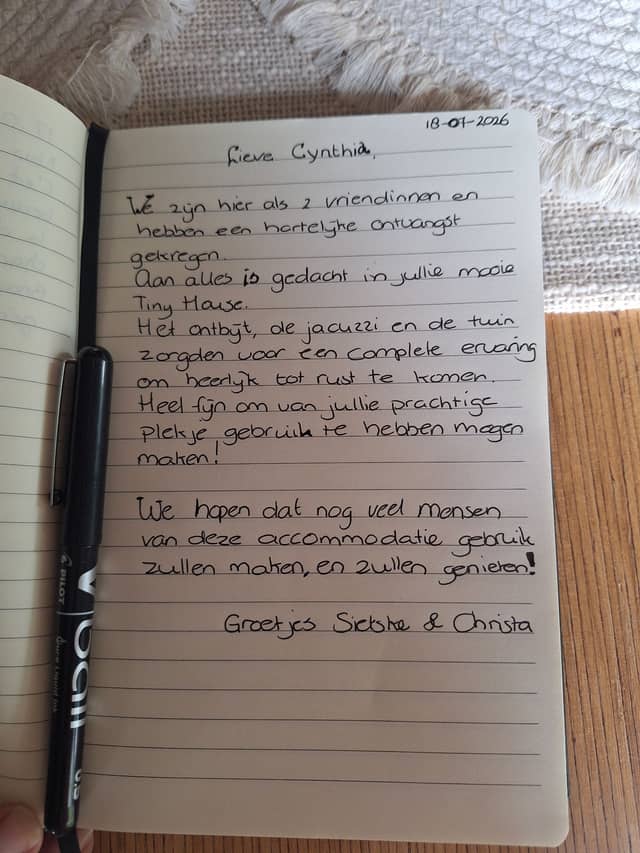 18-07-2026
Lieve Cynthia,
We zijn hier als 2 vriendinnen en
hebben een hartelijke ontvangst
gekregen.
Aan alles is gedacht in jullie mooie
Tiny House.
Het ontbijt, de jacuzzi en de tuin
zorgden voor een complete ervaring
om heerlijk tot rust te komen.
Heel fijn om van jullie prachtige
plekje gebruik te hebben mogen
maken!
We hopen dat nog veel mensen
van deze accommodatie gebruik
zullen maken, en zullen genieten!
Groetjes Sietske & Christa
PILOT
V ball